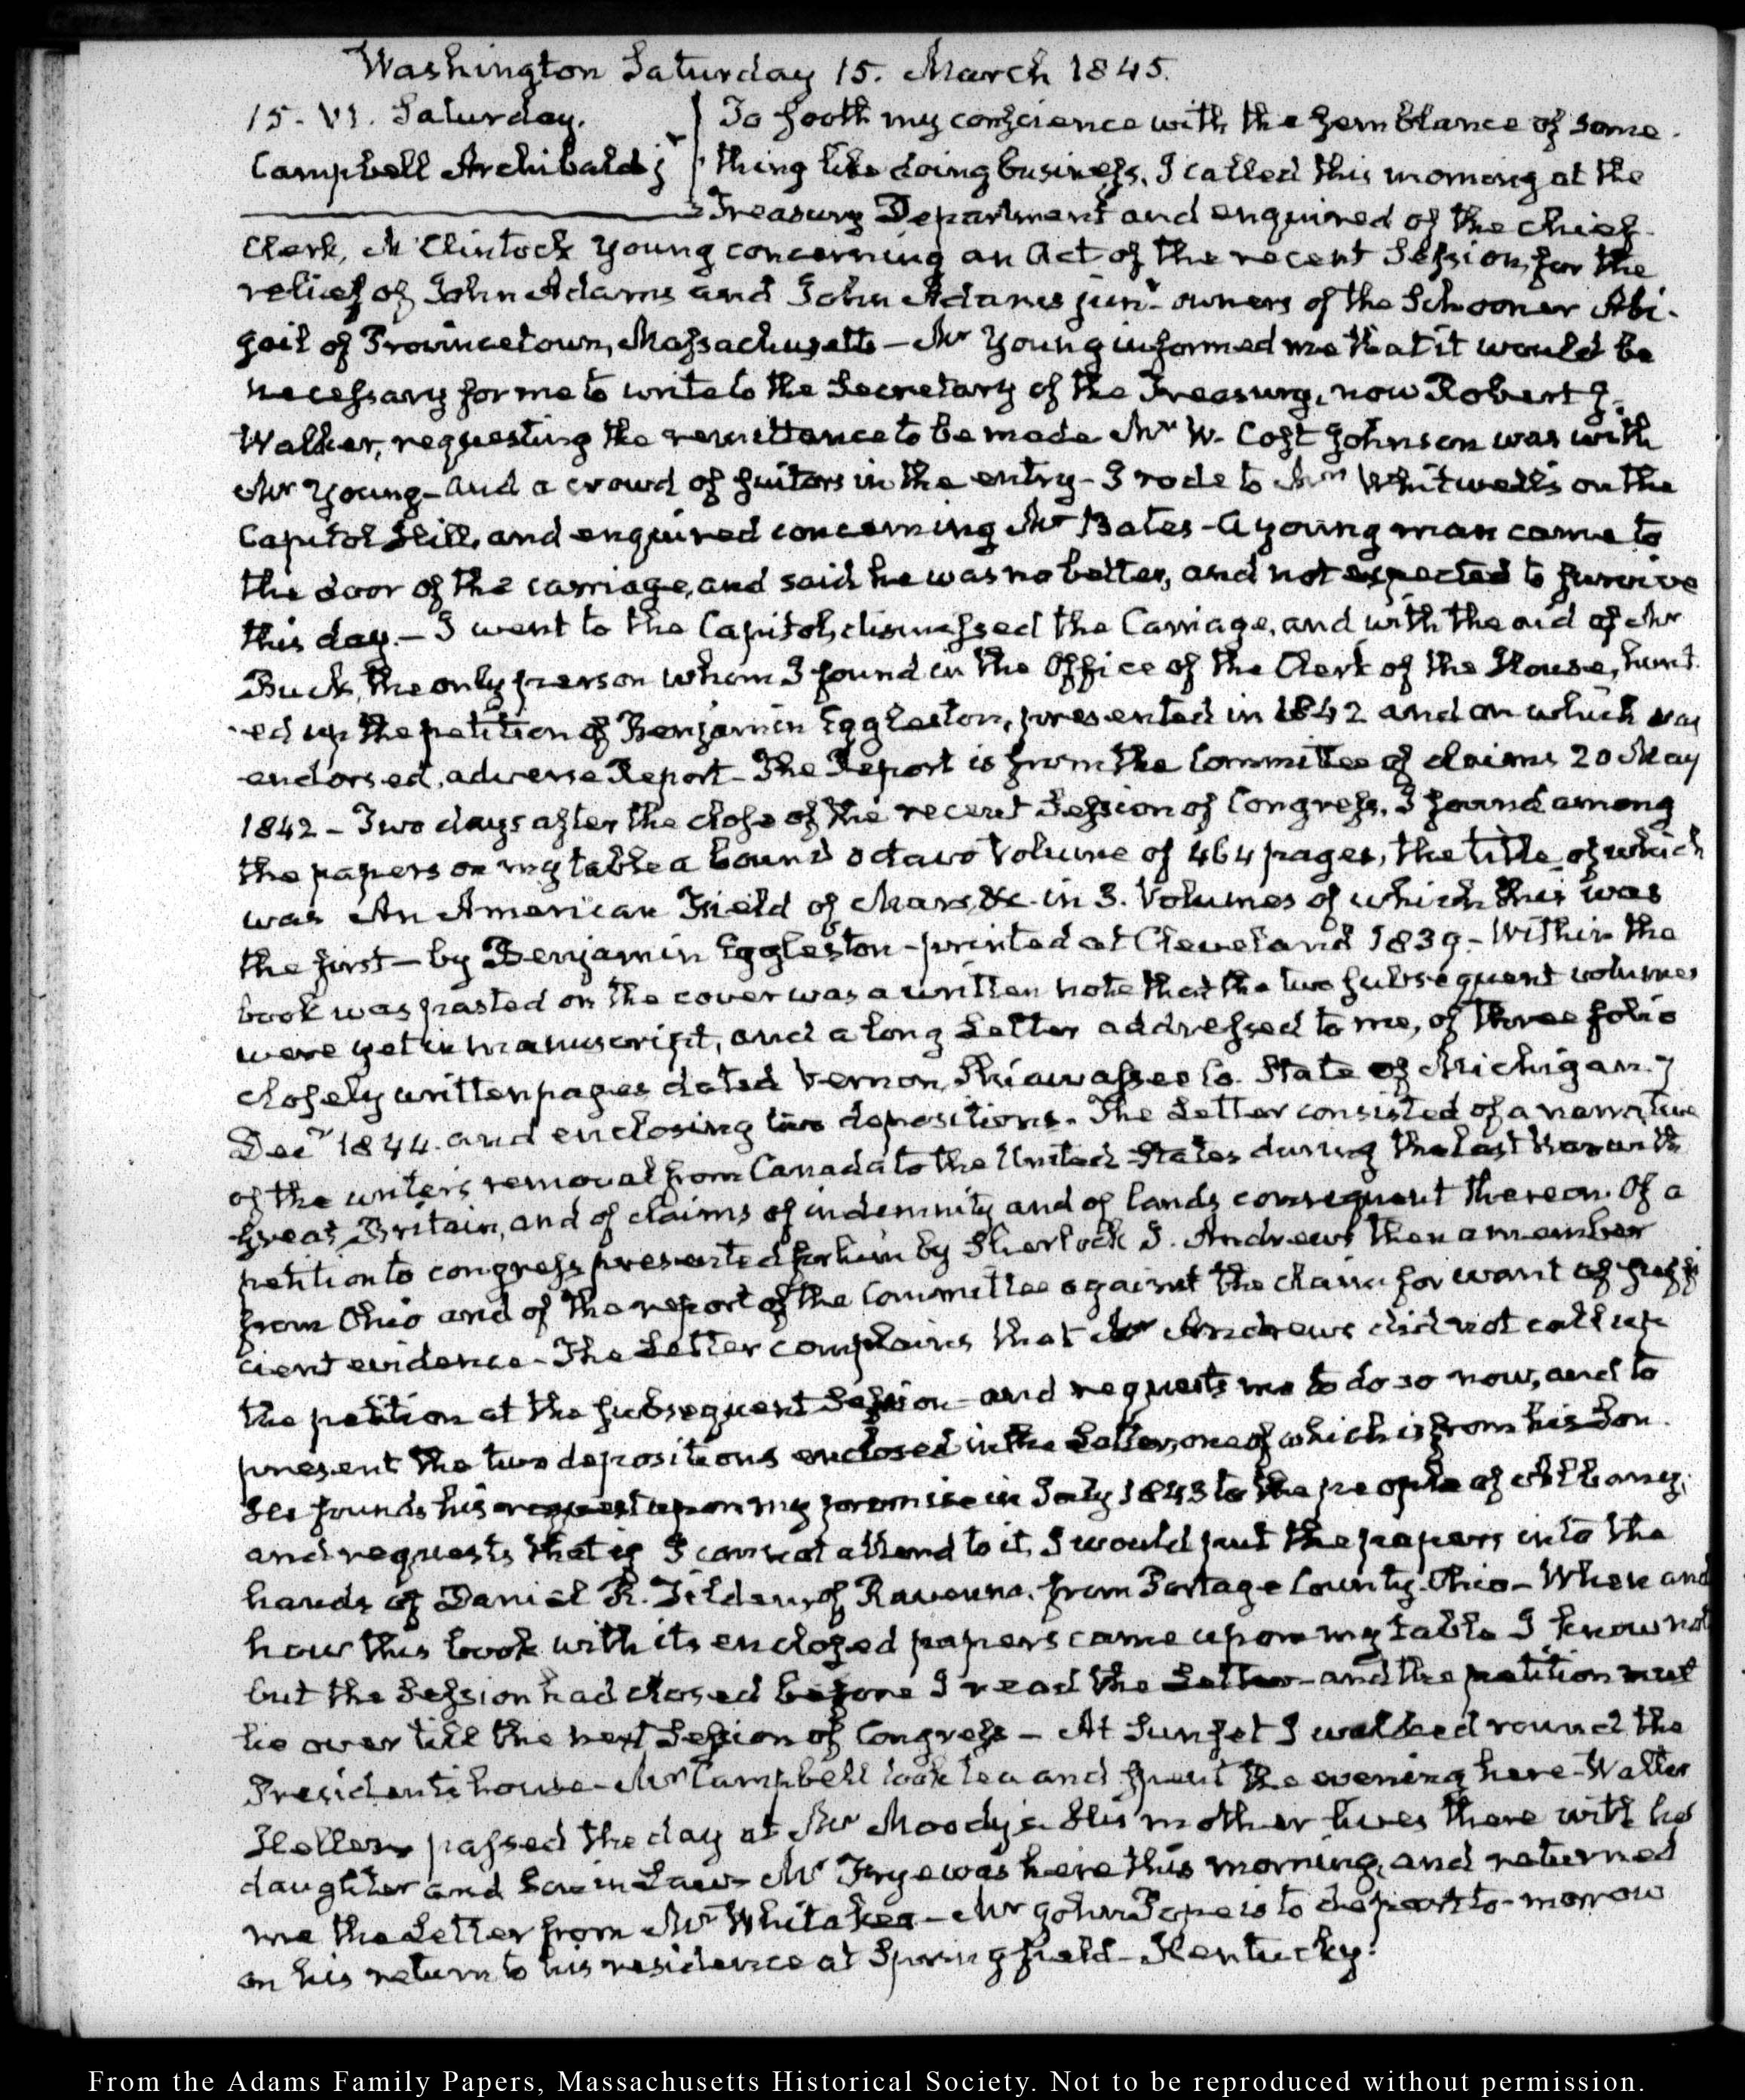 Washington Saturday 15. March 1845.
15. VI. Saturday.
Campbell Archibald jr
To sooth my conscience with the semblance of some-
thing like doing business, I called this morning at the
Treasury Department and enquired of the chief
Clerk, McClintock Young concerning an Act of the recent Session, for the
relief of John Adams and John Adams junr. owners of the Schooner Abi-
gail of Provincetown, Massachusetts — Mr Young informed me that it would be
necessary for me to write to the Secretary of the Treasury, now Robert J.
Walker, requesting the remittance to be made Mr W. Cost Johnson was with
Mr Young — and a crowd of suitors in the entry — I rode to Mrs Whitwell's on the
Capitol Hill, and enquired concerning Mr Bates — A young man came to
the door of the carriage, and said he was no better, and not expected to survive
this day. — I went to the Capitol, dismissed the Carriage, and with the aid of Mr
Buck, the only person whom I found in the Office of the Clerk of the House, hunt-
ed up the petition of Benjamin Eggleston, presented in 1842 and on which was
endorsed, adverse Report — The Report is from the Committee of claims 20 May
1842 — Two days after the close of the recent Session of Congress, I found among
the papers on my table a bound octavo Volume of 464 pages, the title of which
was An American Field of Mars, &c. in 3. Volumes of which this was
the first — by Benjamin Eggleston — printed at Cleveland 1839. — Within the
book was pasted on the cover was a written note that the two subsequent volumes
were yet in manuscript, and a long Letter addressed to me, of three folio
closely written pages dated Vernon, Shiawassee Co. State of Michigan. 7
Decr 1844. and enclosing two depositions. The Letter consisted of a narrative
of the writer's removal from Canada to the United States during the last War with
Great Britain, and of claims of indemnity and of lands consequent thereon. Of a
petition to congress presented for him by Sherlock J. Andrews then a member
from Ohio and of the report of the Committee against the claim for want of suffi
cient evidence — The Letter complains that Mr Andrews did not call up
the petition at the subsequent Session — and requests me to do so now, and to
present the two depositions enclosed in the Letter, one of which is from his Son.
He founds his request upon my promise in July 1843 to the people of
and requests that if I cannot attend to it, I would put the papers into the
hands of Daniel R. Tilden, of Ravenna, from Portage County. Ohio — When and
how this book with its enclosed papers came upon my table I know not
but the Session had closed before I read the Letter — and the petition must
lie over till the next Session of Congress — At Sunset I walked round the
President's house — Mr Campbell took tea and spent the evening here — Walter
Hellen passed the day at Mr Moody's. His mother lives there with her
daughter and Son in Law — Mr Frye was here this morning, and returned
me the Letter from Mr Whitaker — Mr John Pope is to depart to-morrow
on his return to his residence at Springfield — Kentucky.
From the Adams Family Papers, Massachusetts Historical Society. Not to be reproduced without permission.